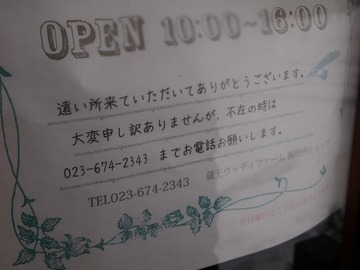 OPEN 10:00~16:00
遠い所来ていただいてありがとうございます。
大変申し訳ありませんが、不在の時は
023-674-2343 までお電話お願いします。
TEL023-674-2343 蔵王ウッディファーム